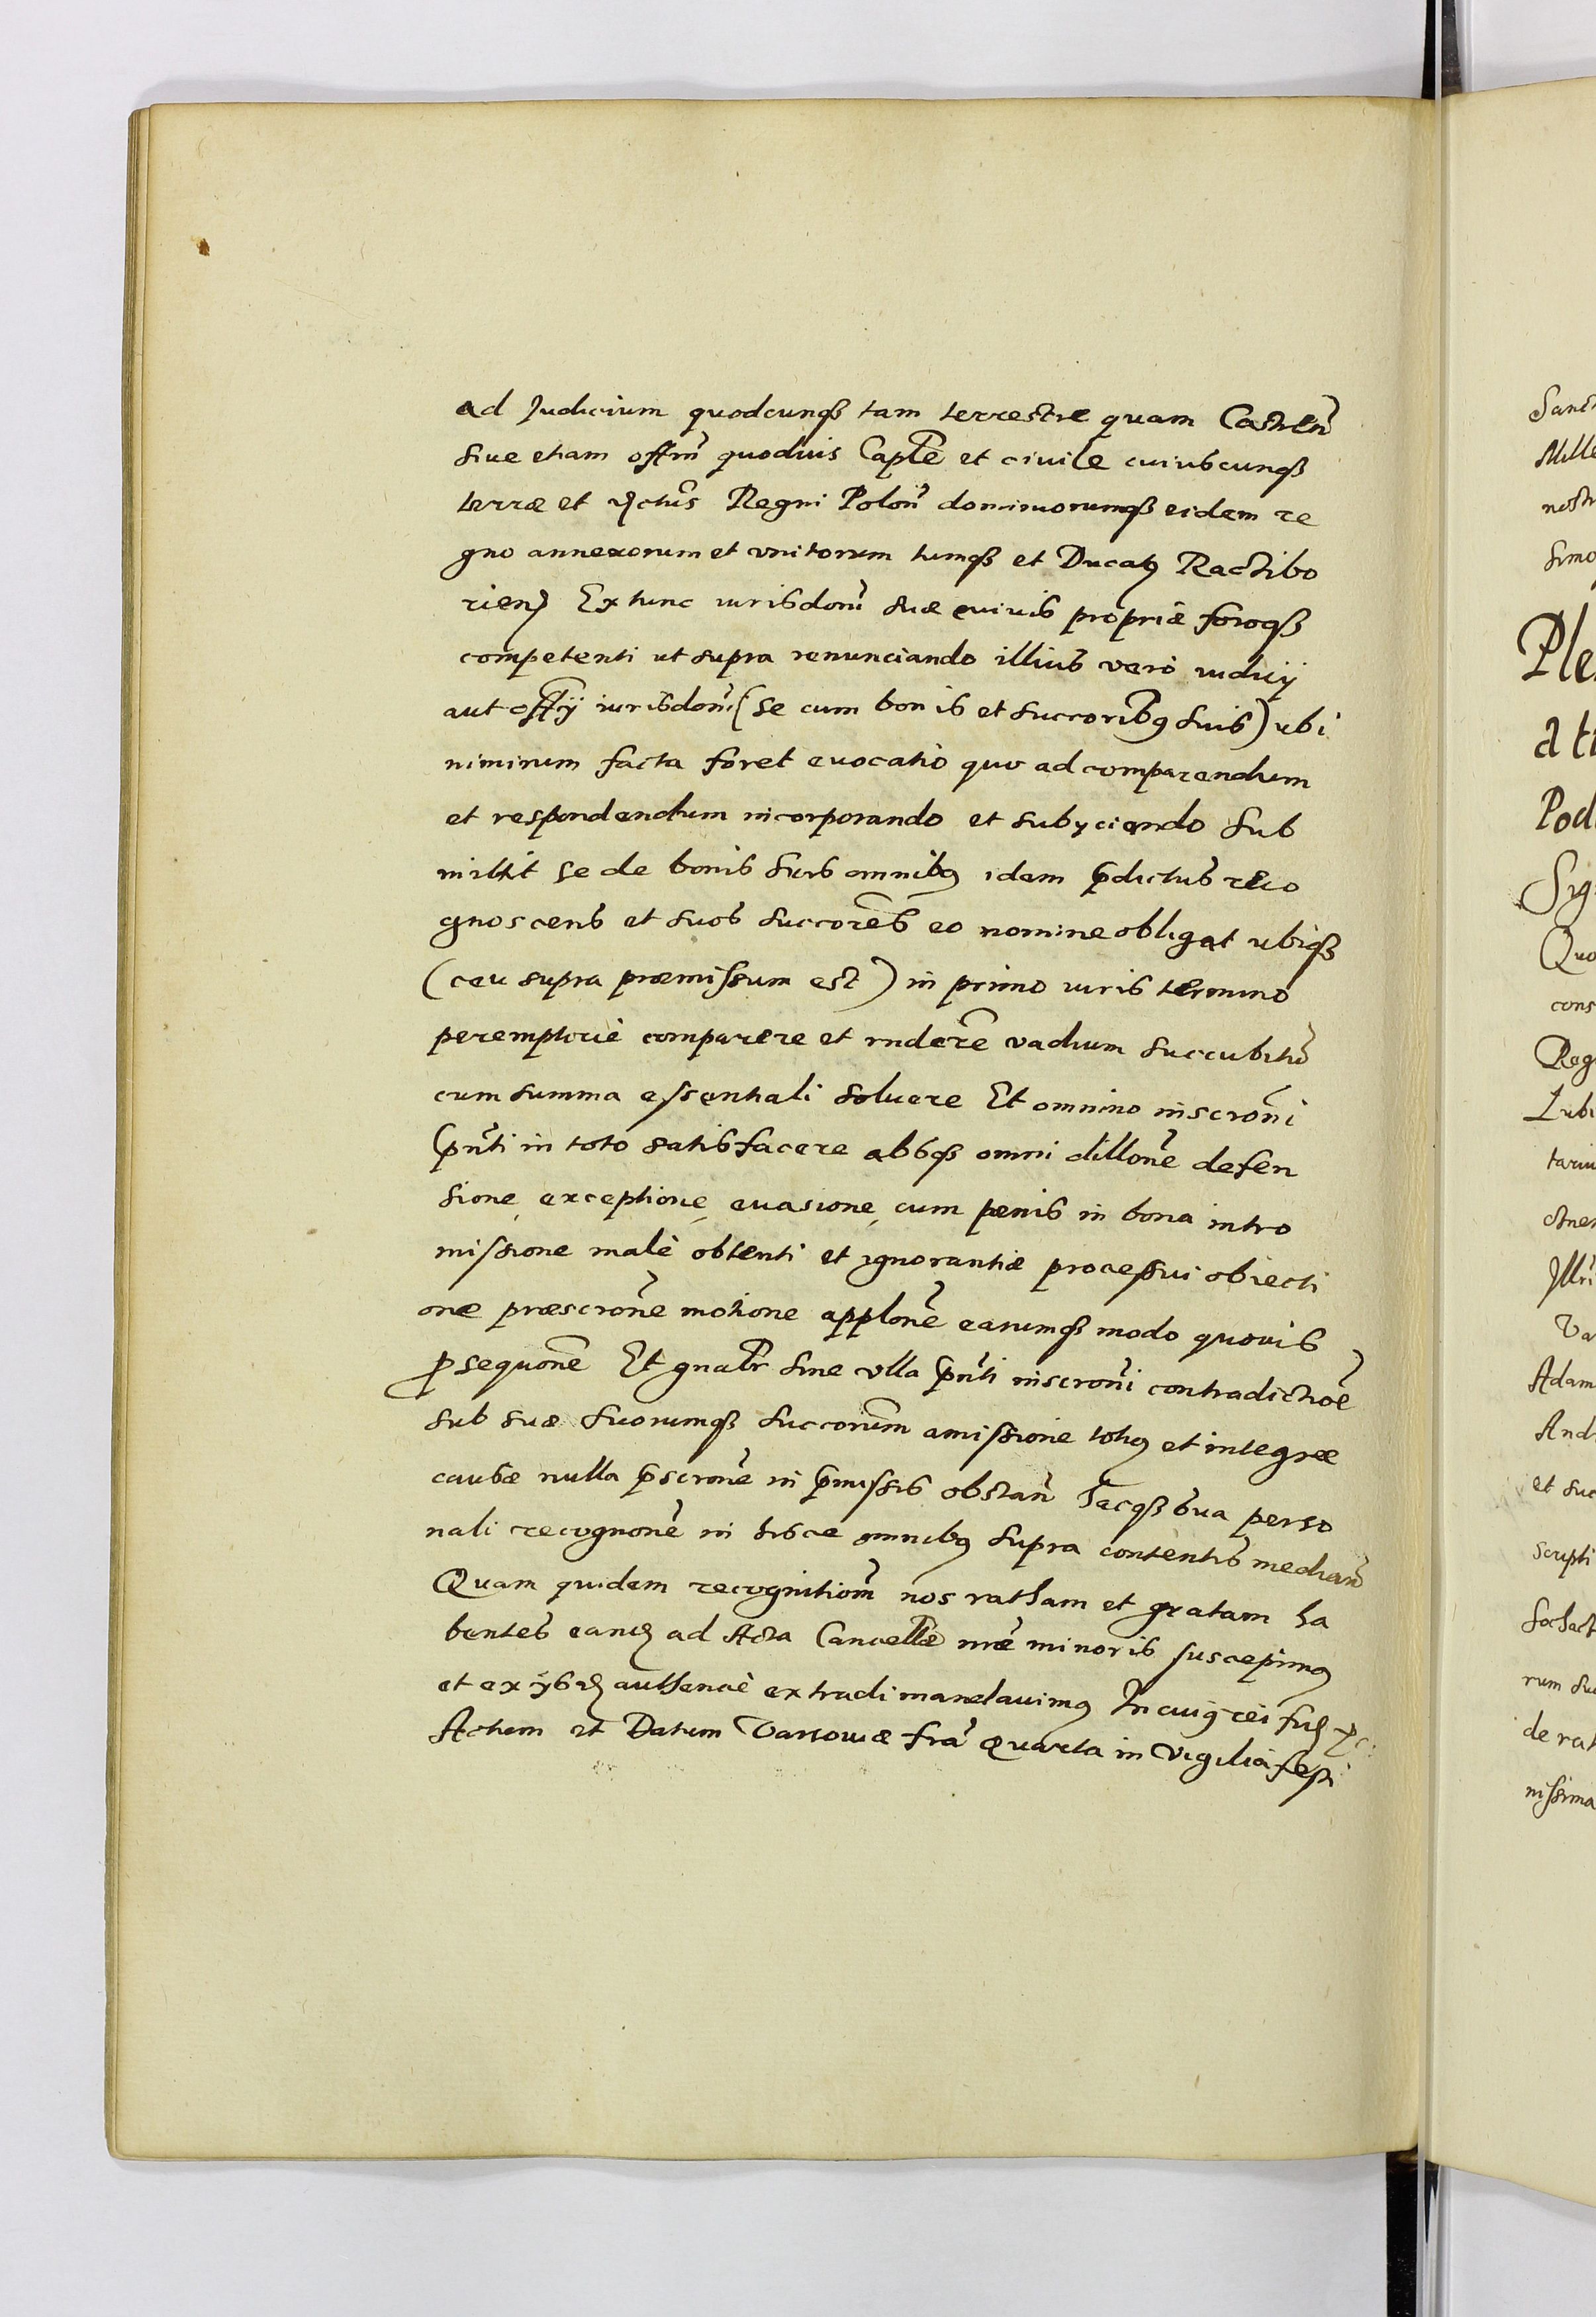 ad Judicium quodcunq₃ tam terrestre quam Castren̄
siue etiam offm̄ quoduis Caplē et ciuile cuiuscunq₃
terræ et Regni Polon̄ dominiorumq₃ eidem re
gno annexorum et vnitorum tumq₃ et Ducatꝰ Ractibo
rien Ex tunc iurisdoni suæ cuiuis propriæ foroq₃
competenti ut supra renunciando illius verò iudicij
aut offij iurisdoni (se cum bonis et succoribꝰ suis) ubi
nimirum facta foret euocatio quo ad comparendum
et respondendum incorporando et subyciendo Sub
mittit se de bonis suis omnibꝰ idem p̄dictus reco
gnoscens et suos succorēs eo nomine obligat ubiq₃
(ceu supra præmissum est) in primo iuris termino
peremptoriè comparere et rnderē vadium succubitū
cum summa essentiali soluere Et omnino inscroni
p̄nti in toto satisfacere absq₃ omni dillonē defen
sione, exceptione, euasione, cum penis in bona intro
missione malè obtenti et ignorantiæ processui obiecti
one præscronē motione applonē earumq₃ modo quouis
ꝓsequonē Et gnalr sine vlla p̄nti inscroni contradictiōe
sub suæ suorumq₃ succorum amissione totiꝰ et integræ
causæ nulla p̄scronē in p̄missis obstan̄ Hacq₃ sua perso
nali recognonē in hisce omnibꝰ supra contentis median̄
Quam quidem recognitiom̄ nos ratham et gratam ha
bentes ad Acta Cancellæ nræ minoris suscepimꝰ
et ex authencè extradi mandauimꝰ In cuiꝰ rei
Actum et Datum Varsouiæ fra Quarta in Vigilia festi
Sanct
Mille
nostr
simo
Ple
a ti
Pod
Sig
Quo
cons
Reg
Lub
tariu
Illri
Va
Adam
Andr
et suc
scripti
Sochact
rum su
de rat
nissima